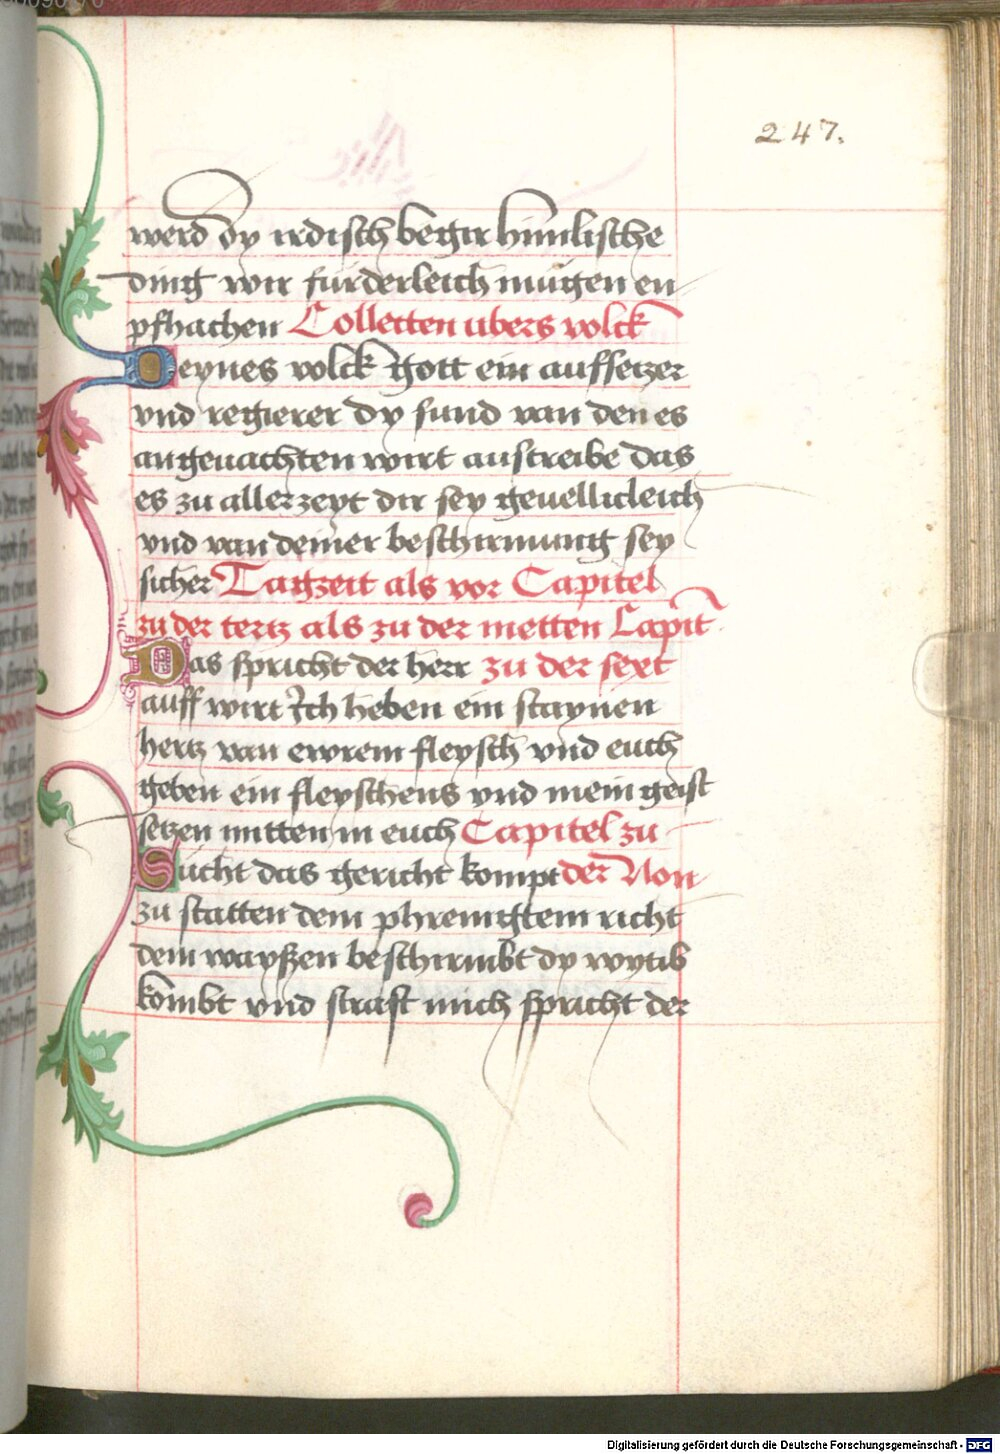 247.
werd dy irdisch begir himlische
ding wir fürderleich mügen en
pfhachen Collecten ubers volck
Deynes volck gott ein auffseczer
vnd regierer dy sund van den es
angeuachten wirt austreibe das
es zu aller zeyt dir sey geuellicleich
vnd van deiner beschirmung sey
sicher Tagzeit als vor Capitel
zu der tertz als zu der metten Capit
Das spricht der herr zu der sext
auff wirt Ich heben ein staynen
hertz van ewrem fleysch vnd euch
geben ein fleyschens vnd mein geist
setzen mitten in euch Capitel zu
Sucht das gericht kompt der Non
zu statten dem phrenigtem richt
dem wayszen beschirmbt dy wytib
kombt vnd straft mich spricht der
Digitalisierung gefördert durch die Deutsche Forschungsgemeinschaft - DFG